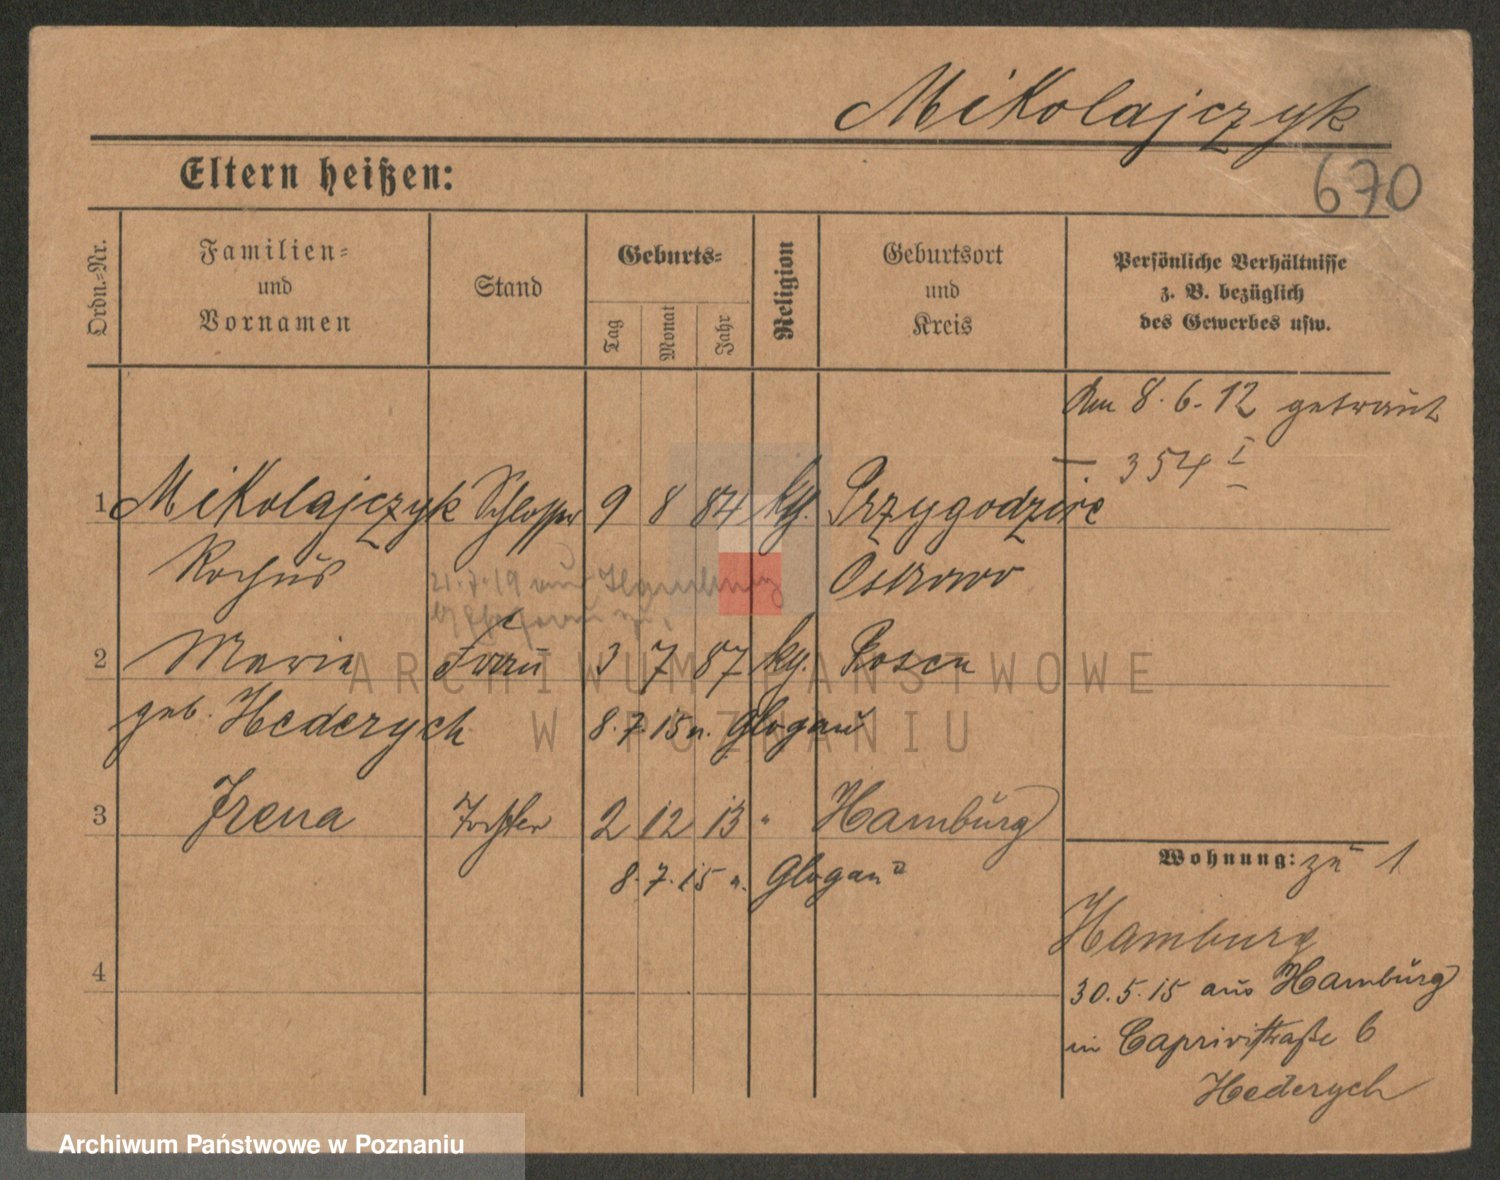 Mikolajczyk
Eltern heißen:
670
Ordn.-Nr.
Familien-
und
Vornamen
Stand
Geburts-
Tag
Monat
Jahr
Religion
Geburtsort
und
Kreis
Persönliche Verhältnisse
z. B. bezüglich
des Gewerbes usw.
Am 8.6.12 getraut
— 354 I
1 Mikolajczyk Schlosser 9 8 84 kg. Przygodzice
Rochus Ostrowo
21.7.19 aus
2 Maria Frau 3 7 87 kg. Posen
geb. Hederych 8.7.15 n. Glogau
3 Irena Tochter 2 12 13 " Hamburg
8.7.15 n. Glogau
4
Wohnung: zu 1
Hamburg
30.5.15 aus Hamburg
in Caprivistraße 6
Hederych
ARCHIWUM PAŃSTWOWE
W POZNANIU
Archiwum Państwowe w Poznaniu